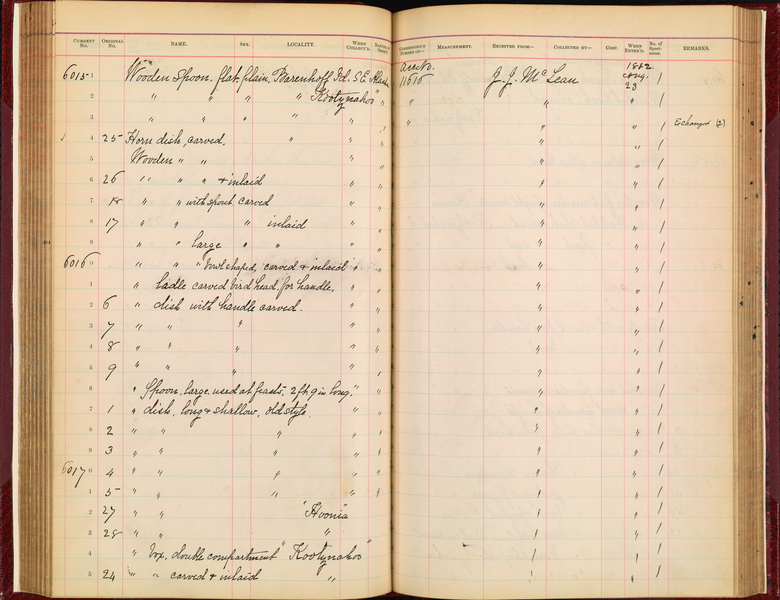 CURRENT No. ORIGINAL No. NAME. SEX. LOCALITY. WHEN COLLECT'D. NATURE OF OBJECT. MEASUREMENT. RECEIVED FROM— COLLECTED BY— COST. WHEN ENTER'D. No. of Specimens. REMARKS.
6015 1 Wooden Spoon, flat, plain, Barenhoff Id. S.E. Alaska 11616 J. J. McLean 1882 Aug. 23 1
2 " " " " "Kootznahoo" " " " " 1
3 " " " " " " " " " 1 Exchanged (2)
4 25 Horn dish, carved. " " " " " 1
5 Wooden " " " " " 1
6 26 " " " & inlaid " " " " 1
7 18 " " with spout carved " " " " 1
8 17 " " " inlaid " " " " 1
9 " " large " " " " " " 1
6016 0 " " " bowl shaped, carved & inlaid " " " " " 1
1 " ladle carved bird head for handle. " " " " 1
2 6 " dish with handle carved. " " " " 1
3 7 " " " " " " " 1
4 8 " " " " " " " 1
5 9 " " " " " " " 1
6 " Spoon, large, used at feasts, 2 ft. 9 in long. " " " " 1
7 1 " dish, long & shallow, old style " " " " 1
8 2 " " " " " " " 1
9 3 " " " " " " " 1
6017 0 4 " " " " " " " 1
1 5 " " " " " " " 1
2 27 " " "Hoonia " " " 1
3 28 " " " " " " 1
4 " box, double compartment "Kootznahoo" " " 1
5 24 " " carved & inlaid " " " 1